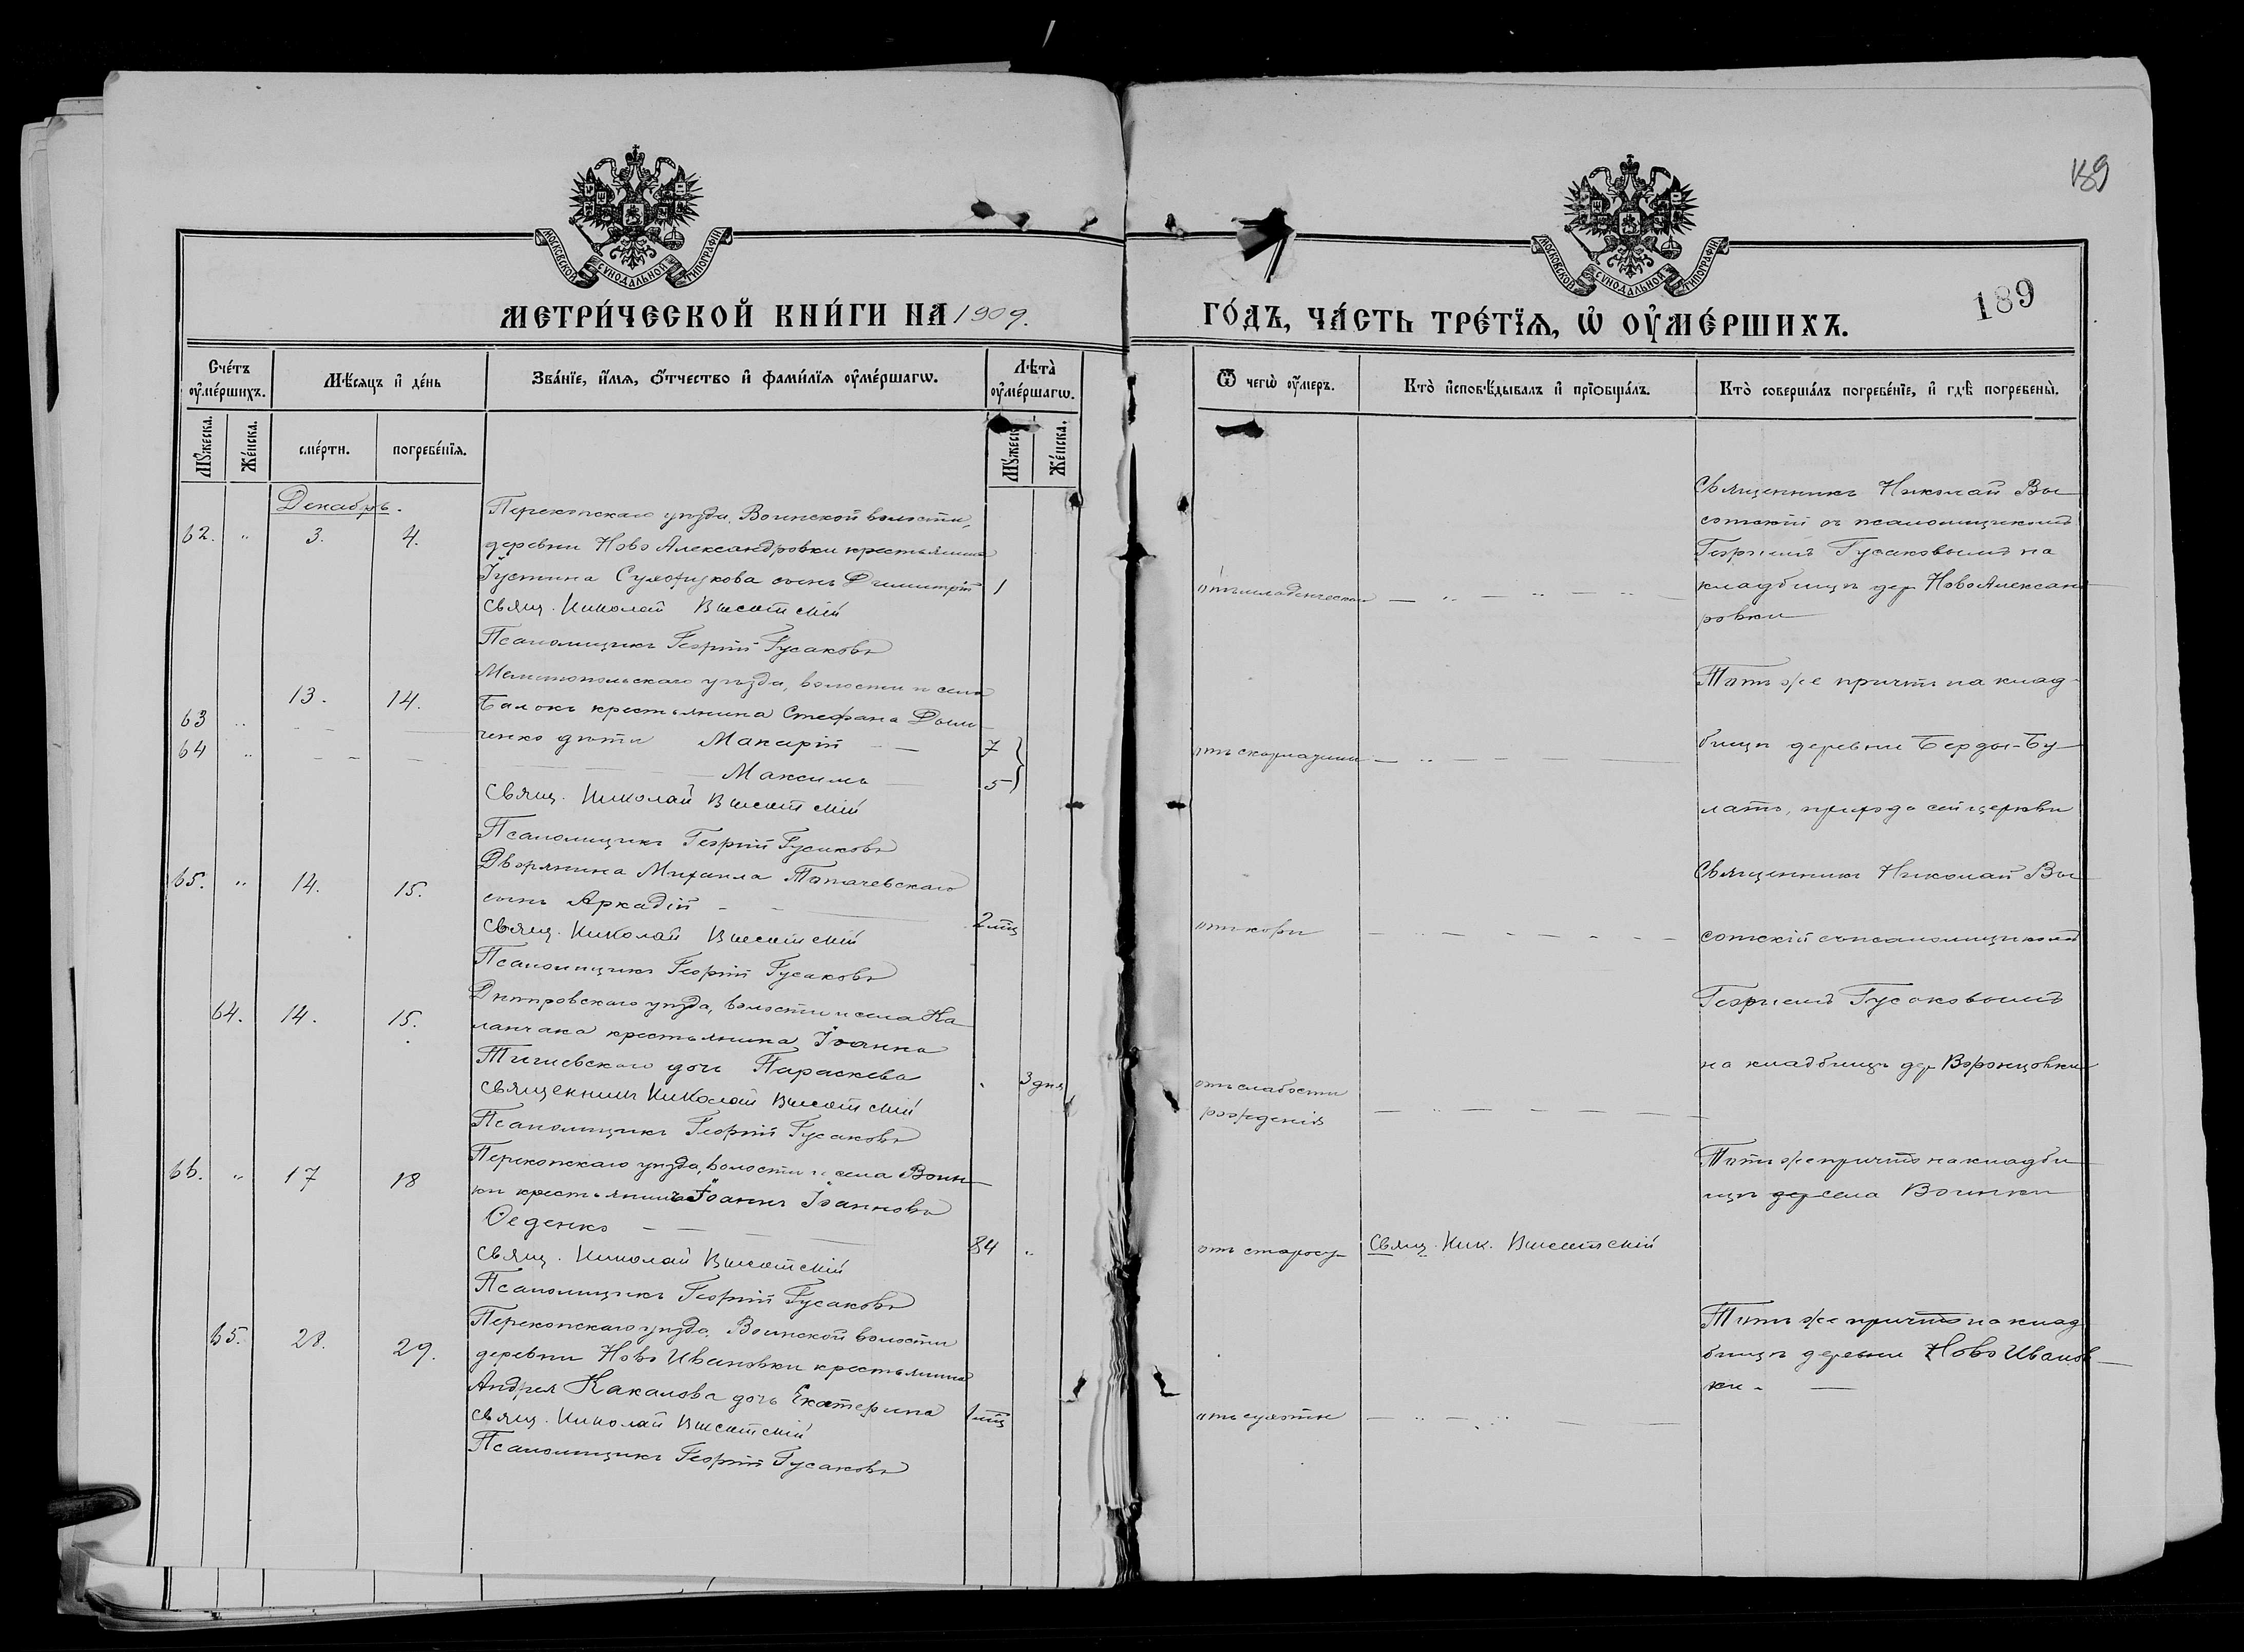 189
МОСКОВСКОЙ СѴНОДАЛЬНОЙ ТИПОГРАФІИ
МОСКОВСКОЙ СѴНОДАЛЬНОЙ ТИПОГРАФІИ
МЕТРИ́ЧЕСКОЙ КНИ́ГИ НА 1909.
ГО́ДЪ, ЧА́СТЬ ТРЕ́ТІѦ, Ѡ҆ ОУ҆МЕ́РШИХЪ.
189
Сче́тъ оу҆ме́ршихъ.
Мѣ́сяцъ и҆ де́нь
Зва́нїе, и҆́мѧ, ѻ҆́тчество и҆ фами́лїѧ оу҆ме́ршагѡ.
Лѣ́та оу҆ме́ршагѡ.
Ѿ чегѡ̀ оу҆́меръ.
Кто̀ и҆сповѣ́дывалъ и҆ прїѡбща́лъ.
Кто̀ соверша́лъ погребе́нїе, и҆ гдѣ̀ погребены̀.
Му́жеска.
Же́нска.
сме́рти.
погребе́нїѧ.
Му́жеск
Же́нска.
Декабрь.
62. " 3. 4.
Перекопскаго уѣзда, Воинской волости,
деревни Ново Александровки крестьянина
Іустина сынъ Димитрій 1
Свящ. Николай Высотскій
Псаломщикъ Георгій Гусаковъ
отъ младенческой
Священникъ Николай Вы-
сотскій съ псаломщикомъ
Георгіемъ Гусаковымъ на
кладбищѣ дер. Ново Алексан
ровки
63 " 13. 14.
64 "
Мелитопольскаго уѣзда, волости и села
Балокъ крестьянина Стефана
ченко дѣти Макарій 7
Максимъ 5
Свящ. Николай Высотскій
Псаломщикъ Георгій Гусаковъ
отъ скарлатины
Тотъ же причтъ на клад-
бищѣ деревни Берды-Бу-
латъ, прихода сей церкви
65. " 14. 15.
Дворянина Михаила
сынъ Аркадій
2 мц
Свящ. Николай Высотскій
Псаломщикъ Георгій Гусаковъ
отъ кори
Священникъ Николай Вы
сотскій съ псаломщикомъ
Георгіемъ Гусаковымъ
на кладбищѣ дер. Воронцовки
64. 14. 15.
Днѣпровскаго уѣзда, волости и села Ка
ланчака крестьянина Іоанна
дочь Параскева
3 дня
Священникъ Николай Высотскій
Псаломщикъ Георгій Гусаковъ
отъ слабости
рожденія
66. " 17 18
Перекопскаго уѣзда, волости и села Воин-
ки крестьянинъ Іоаннъ Іоанновъ
Феденко
84 "
Свящ. Николай Высотскій
Псаломщикъ Георгій Гусаковъ
отъ старос
Свящ. Ник. Высотскій
Тотъ же причтъ на кладби
щѣ села Воинки
65. 28. 29.
Перекопскаго уѣзда, Воинской волости
деревни Ново Ивановки крестьянина
Андрея Какалова дочь Екатерина
1 мц
Свящ. Николай Высотскій
Псаломщикъ Георгій Гусаковъ
отъ сухотки
Тотъ же причтъ на клад
бищѣ деревни Ново Иванов-
ки.